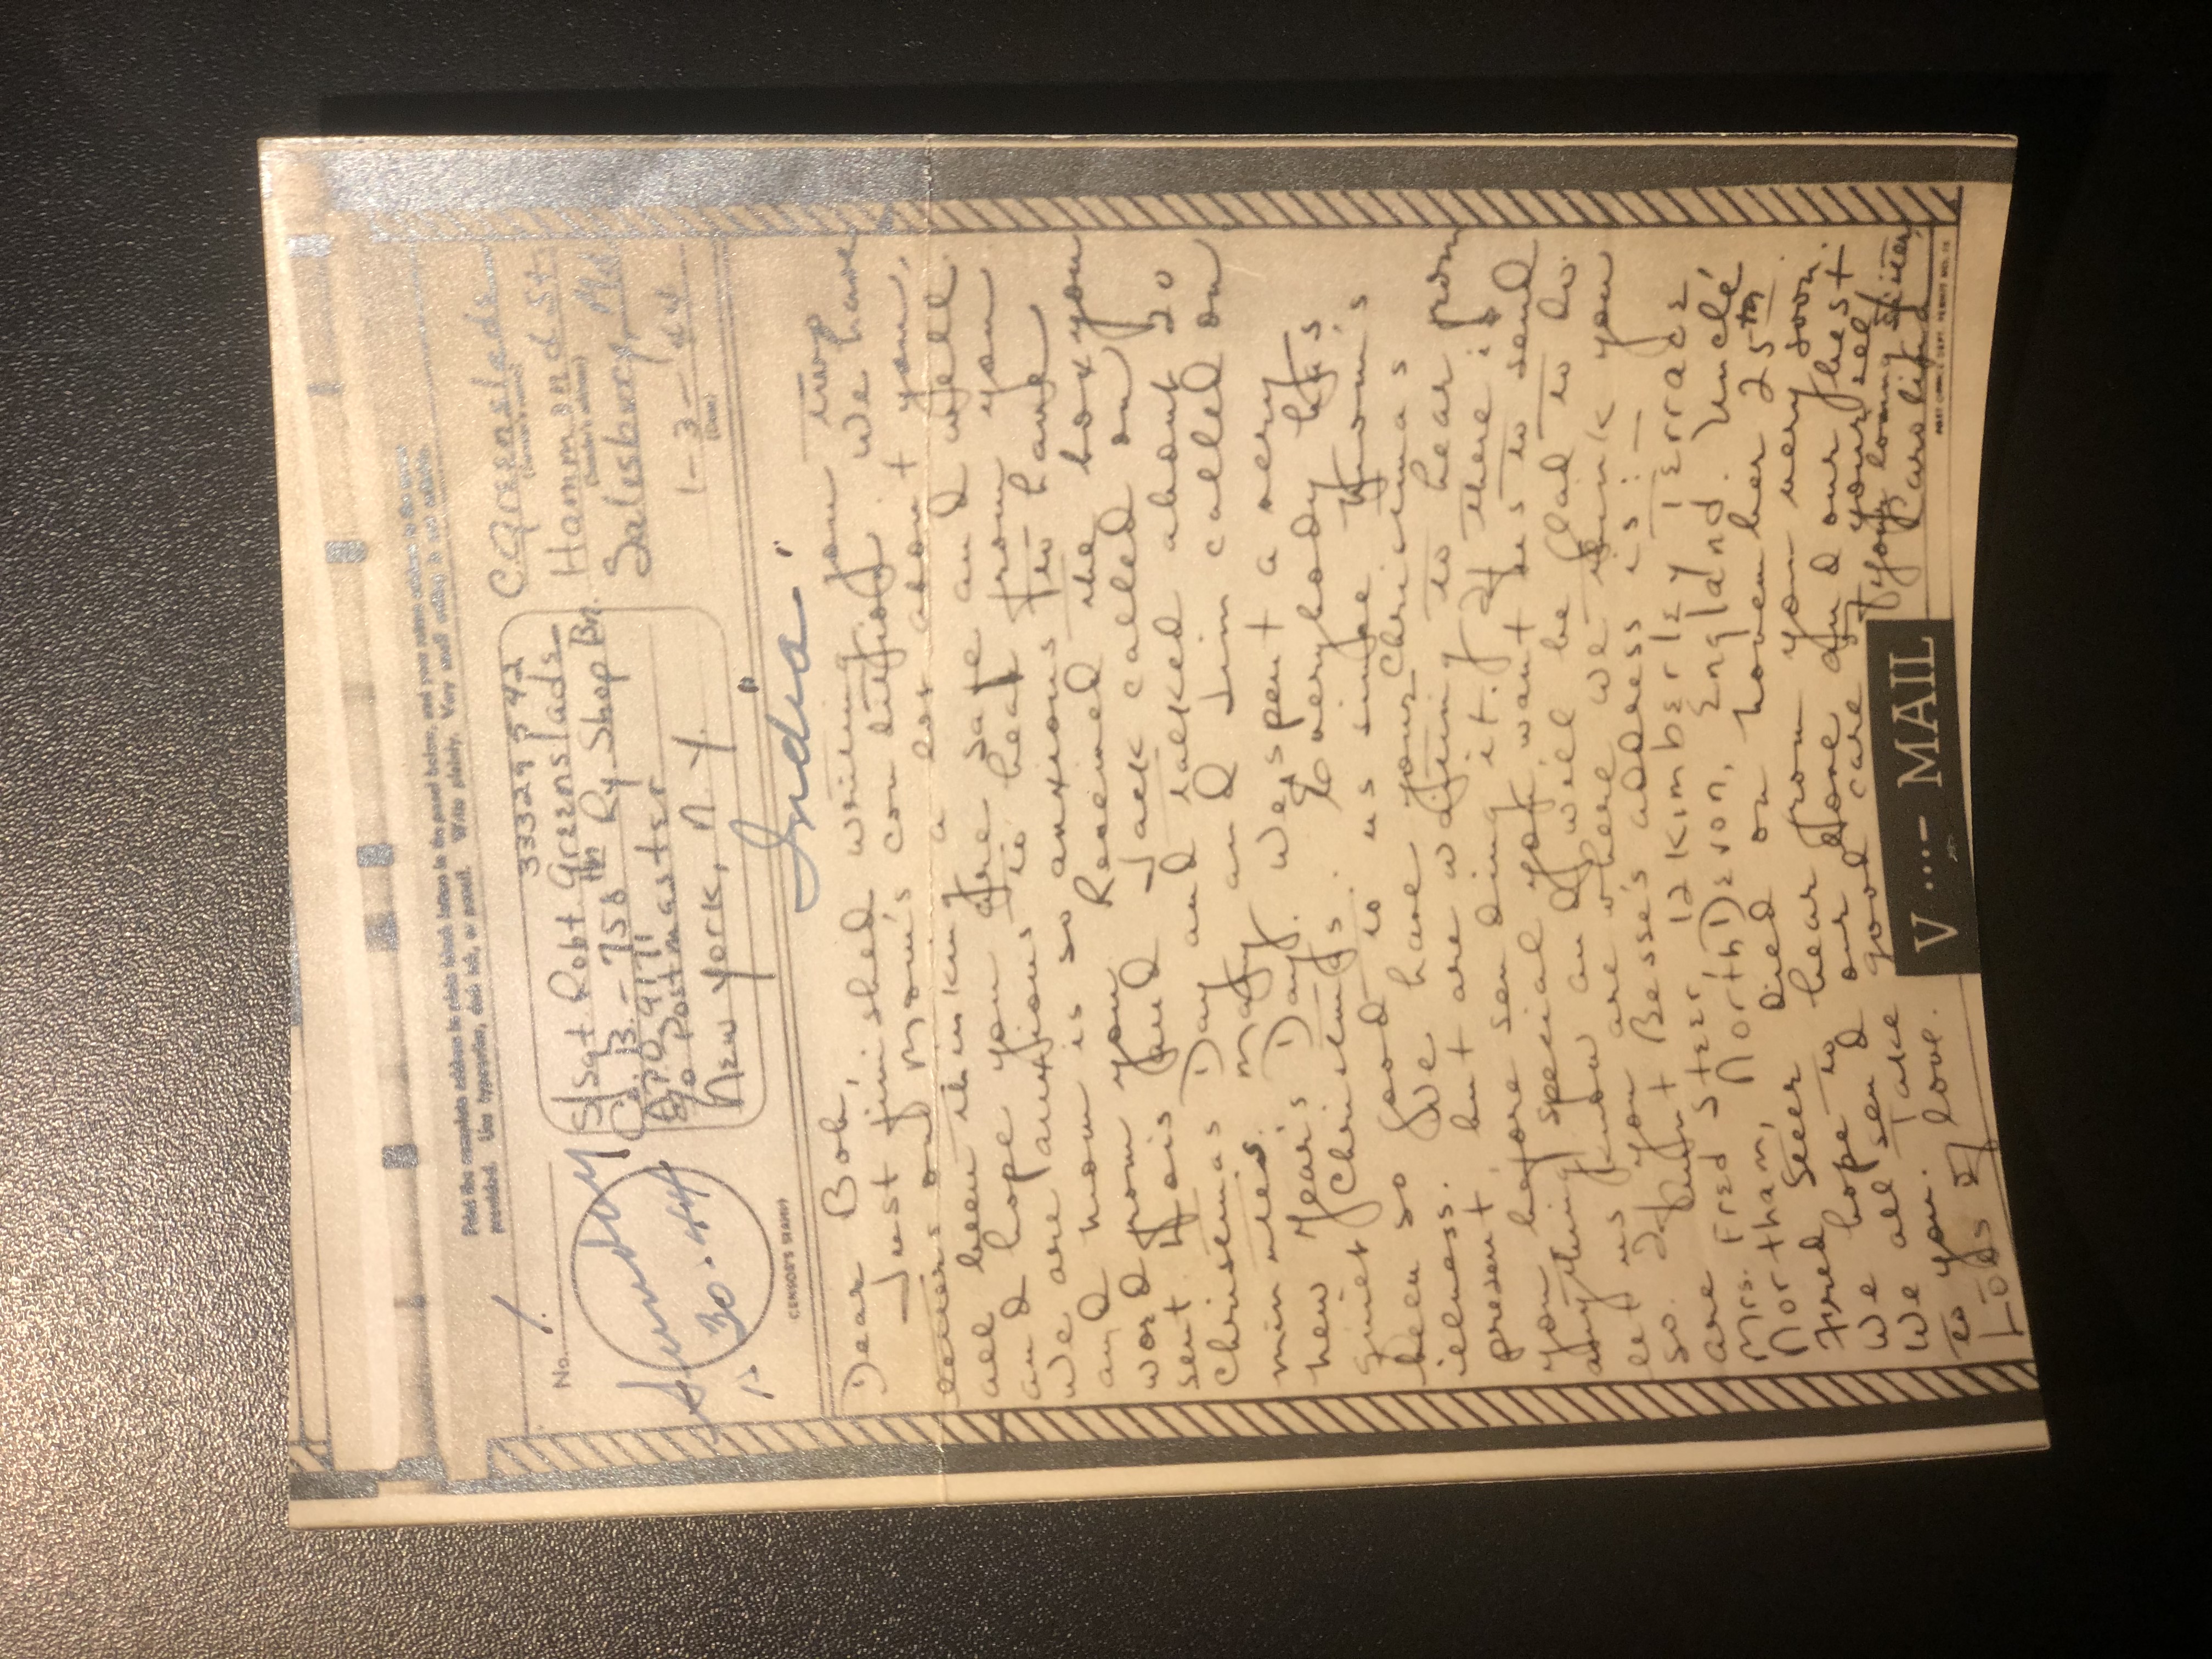 Print the complete address in plain block letters in the panel below, and your return address in the space
provided. Use typewriter, dark ink, or pencil. Write plainly. Very small writing is not suitable.
No. 1.
33329542
S/Sgt. Robt. Greenslade
Co. B. - 758th Ry Shop Bn.
APO 9171
c/o Postmaster
New York, N.Y.
C. Greenslade
(Sender's name)
Hammond St.
(Sender's address)
Salesbury, Md.
1-3-44
(Date)
Sunday
1. 30. 44
CENSOR'S STAMP
"India"
Dear Bob,
Just finished writing you two
letters on Mom's condition. We have
all been thinking a lot about you,
and hope you are safe and well.
We are anxious to hear from you
and Mom is so anxious to have
word from you. Received the box you
sent. Lois and Jack called on
Christmas Day and talked about 20
minutes. Mary and Jim called on
New Year's Day. We spent a very
quiet Christmas. Everybody has
been so good to us since Mom's
illness. We have your Christmas
present, but are waiting to hear from
you before sending it. If there is
anything special you want us to send
let us know and will be glad to do
so. If you are where we think you
are Aunt Besse's address is: -
Mrs. Fred Steer, 12 Kimberley Terrace
Northam, North Devon, England. Uncle
Fred Steer died on November 25th.
We hope to hear from you very soon.
We all send our love and our best
to you. Take good care of yourself
Lots of love. Your loving Sister,
Carolina
V ...- MAIL
POST OFFICE DEPT. PERMIT NO.